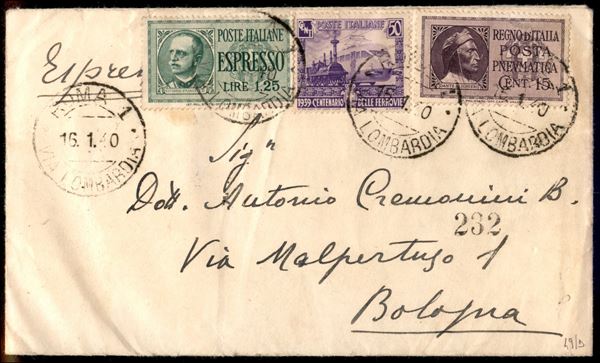 POSTE ITALIANE
ESPRESSO
LIRE 1,25
POSTE ITALIANE
50
1939-CENTENARIO DELLE FERROVIE
REGNO D'ITALIA
POSTA
PNEUMATICA
CENT. 15
Espre
ROMA 1
16.1.40
VIA LOMBARDIA
LOMBARDIA
VIA LOMBARDIA
LOMBARDIA
Sig
Dott. Antonio Cremonini B.
232
Via Malpertuso 1
Bologna